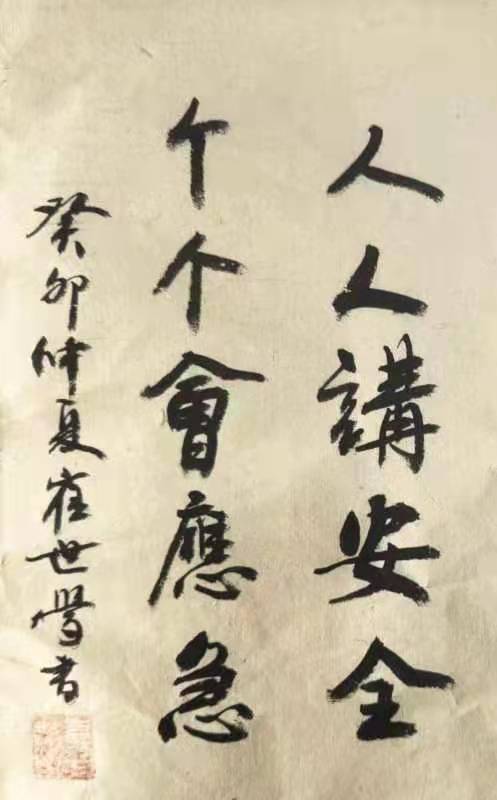 人人講安全
个个會應急
癸卯仲夏崔世學書